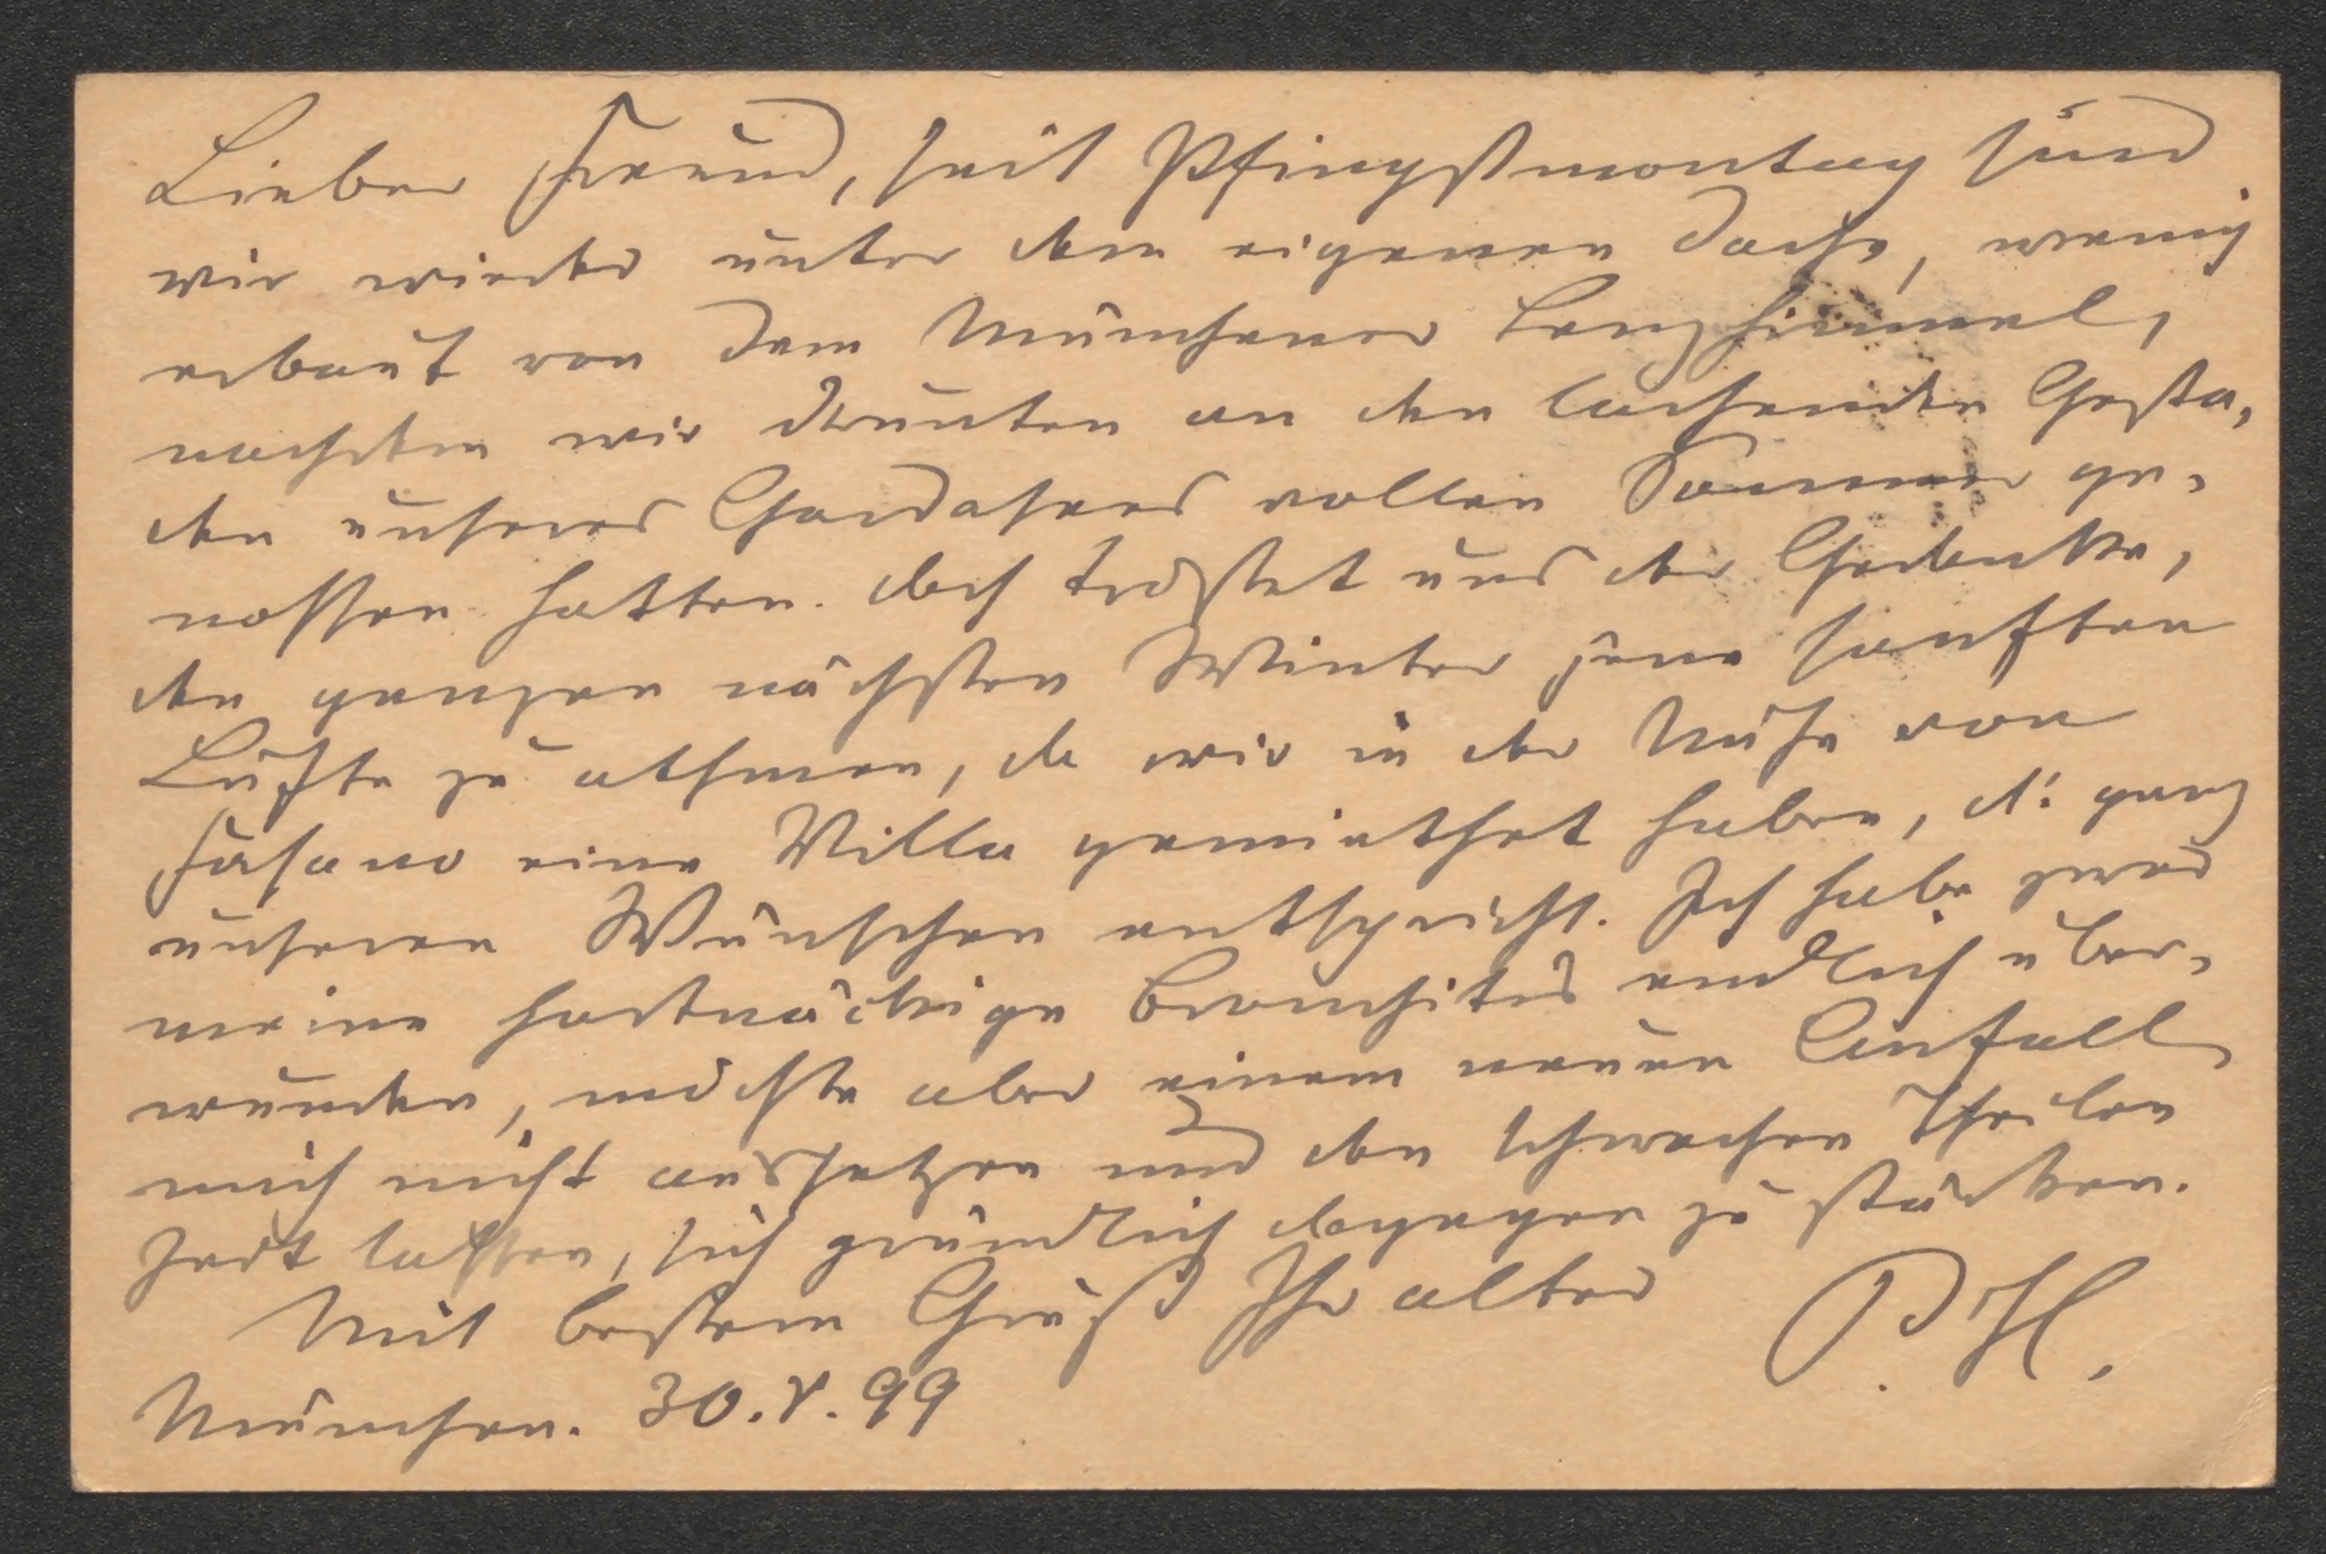 Lieber Freund, seit Pfingstmontag sind
wir wieder unter dem eigenen Dache, wenig
erbaut von dem Münchener Lenzhimmel,
nachdem wir drunten an den lachenden Gesta-
den unseres Gardasees vollen Sommer ge-
nossen hatten. Doch tröstet uns der Gedanke,
den ganzen nächsten Winter jene sanften
Lüfte zu athmen, da wir in der Nähe von
Fasano eine Villa gemiethet haben, die ganz
unseren Wünschen entspricht. Ich habe zwar
meine hartnäckige Bronchitis endlich über-
wunden, möchte aber einem neuen Anfall
mich nicht aussetzen und den schwachen Theilen
Zeit lassen, sich gründlich dagegen zu stärken.
Mit bestem Gruß Ihr alter P. H.
München. 30. V. 99